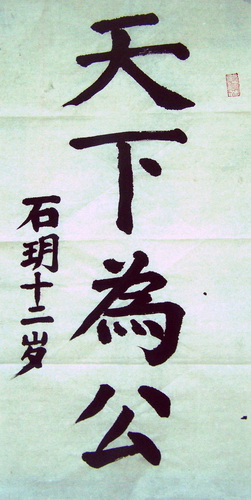 天下為公
石玥十二岁